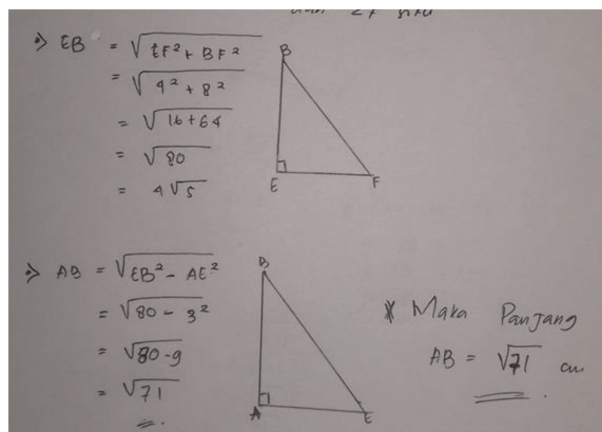 EB = √EF² + BF²
= √4² + 8²
= √16 + 64
= √80
= 4√5
B
E
F
AB = √EB² - AE²
= √80 - 3²
= √80 - 9
= √71
B
A
E
* Maka Panjang
AB = √71 cm